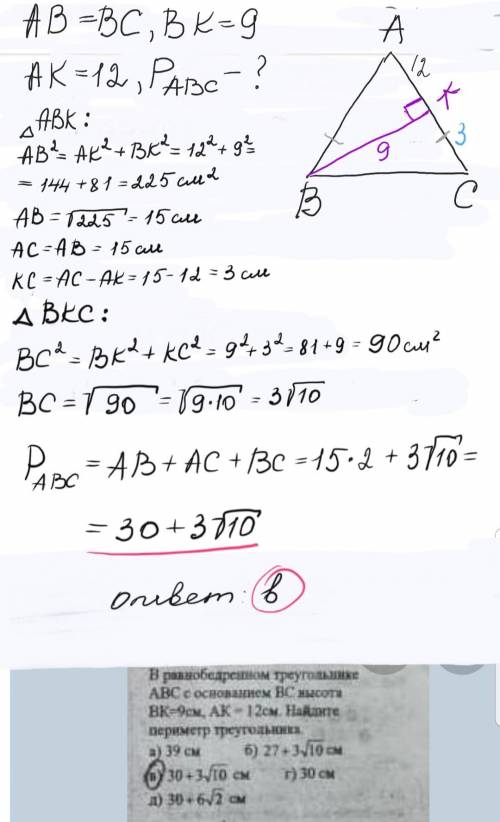 AB=BC, BK=9
AK=12, P_ABC - ?
A
12
K
3
9
B
C
△ABK:
AB²=AK²+BK²=12²+9²=
=144+81=225см²
AB=√225=15см
AC=AB=15см
KC=AC-AK=15-12=3см
△BKC:
BC²=BK²+KC²=9²+3²=81+9=90см²
BC=√90=√9·10=3√10
P_ABC=AB+AC+BC=15·2+3√10=
=30+3√10
ответ: в
В равнобедренном треугольнике
ABC с основанием BC высота
BK=9см, AK = 12см. Найдите
периметр треугольника.
а) 39 см б) 27+3√10 см
в) 30+3√10 см г) 30 см
д) 30+6√2 см